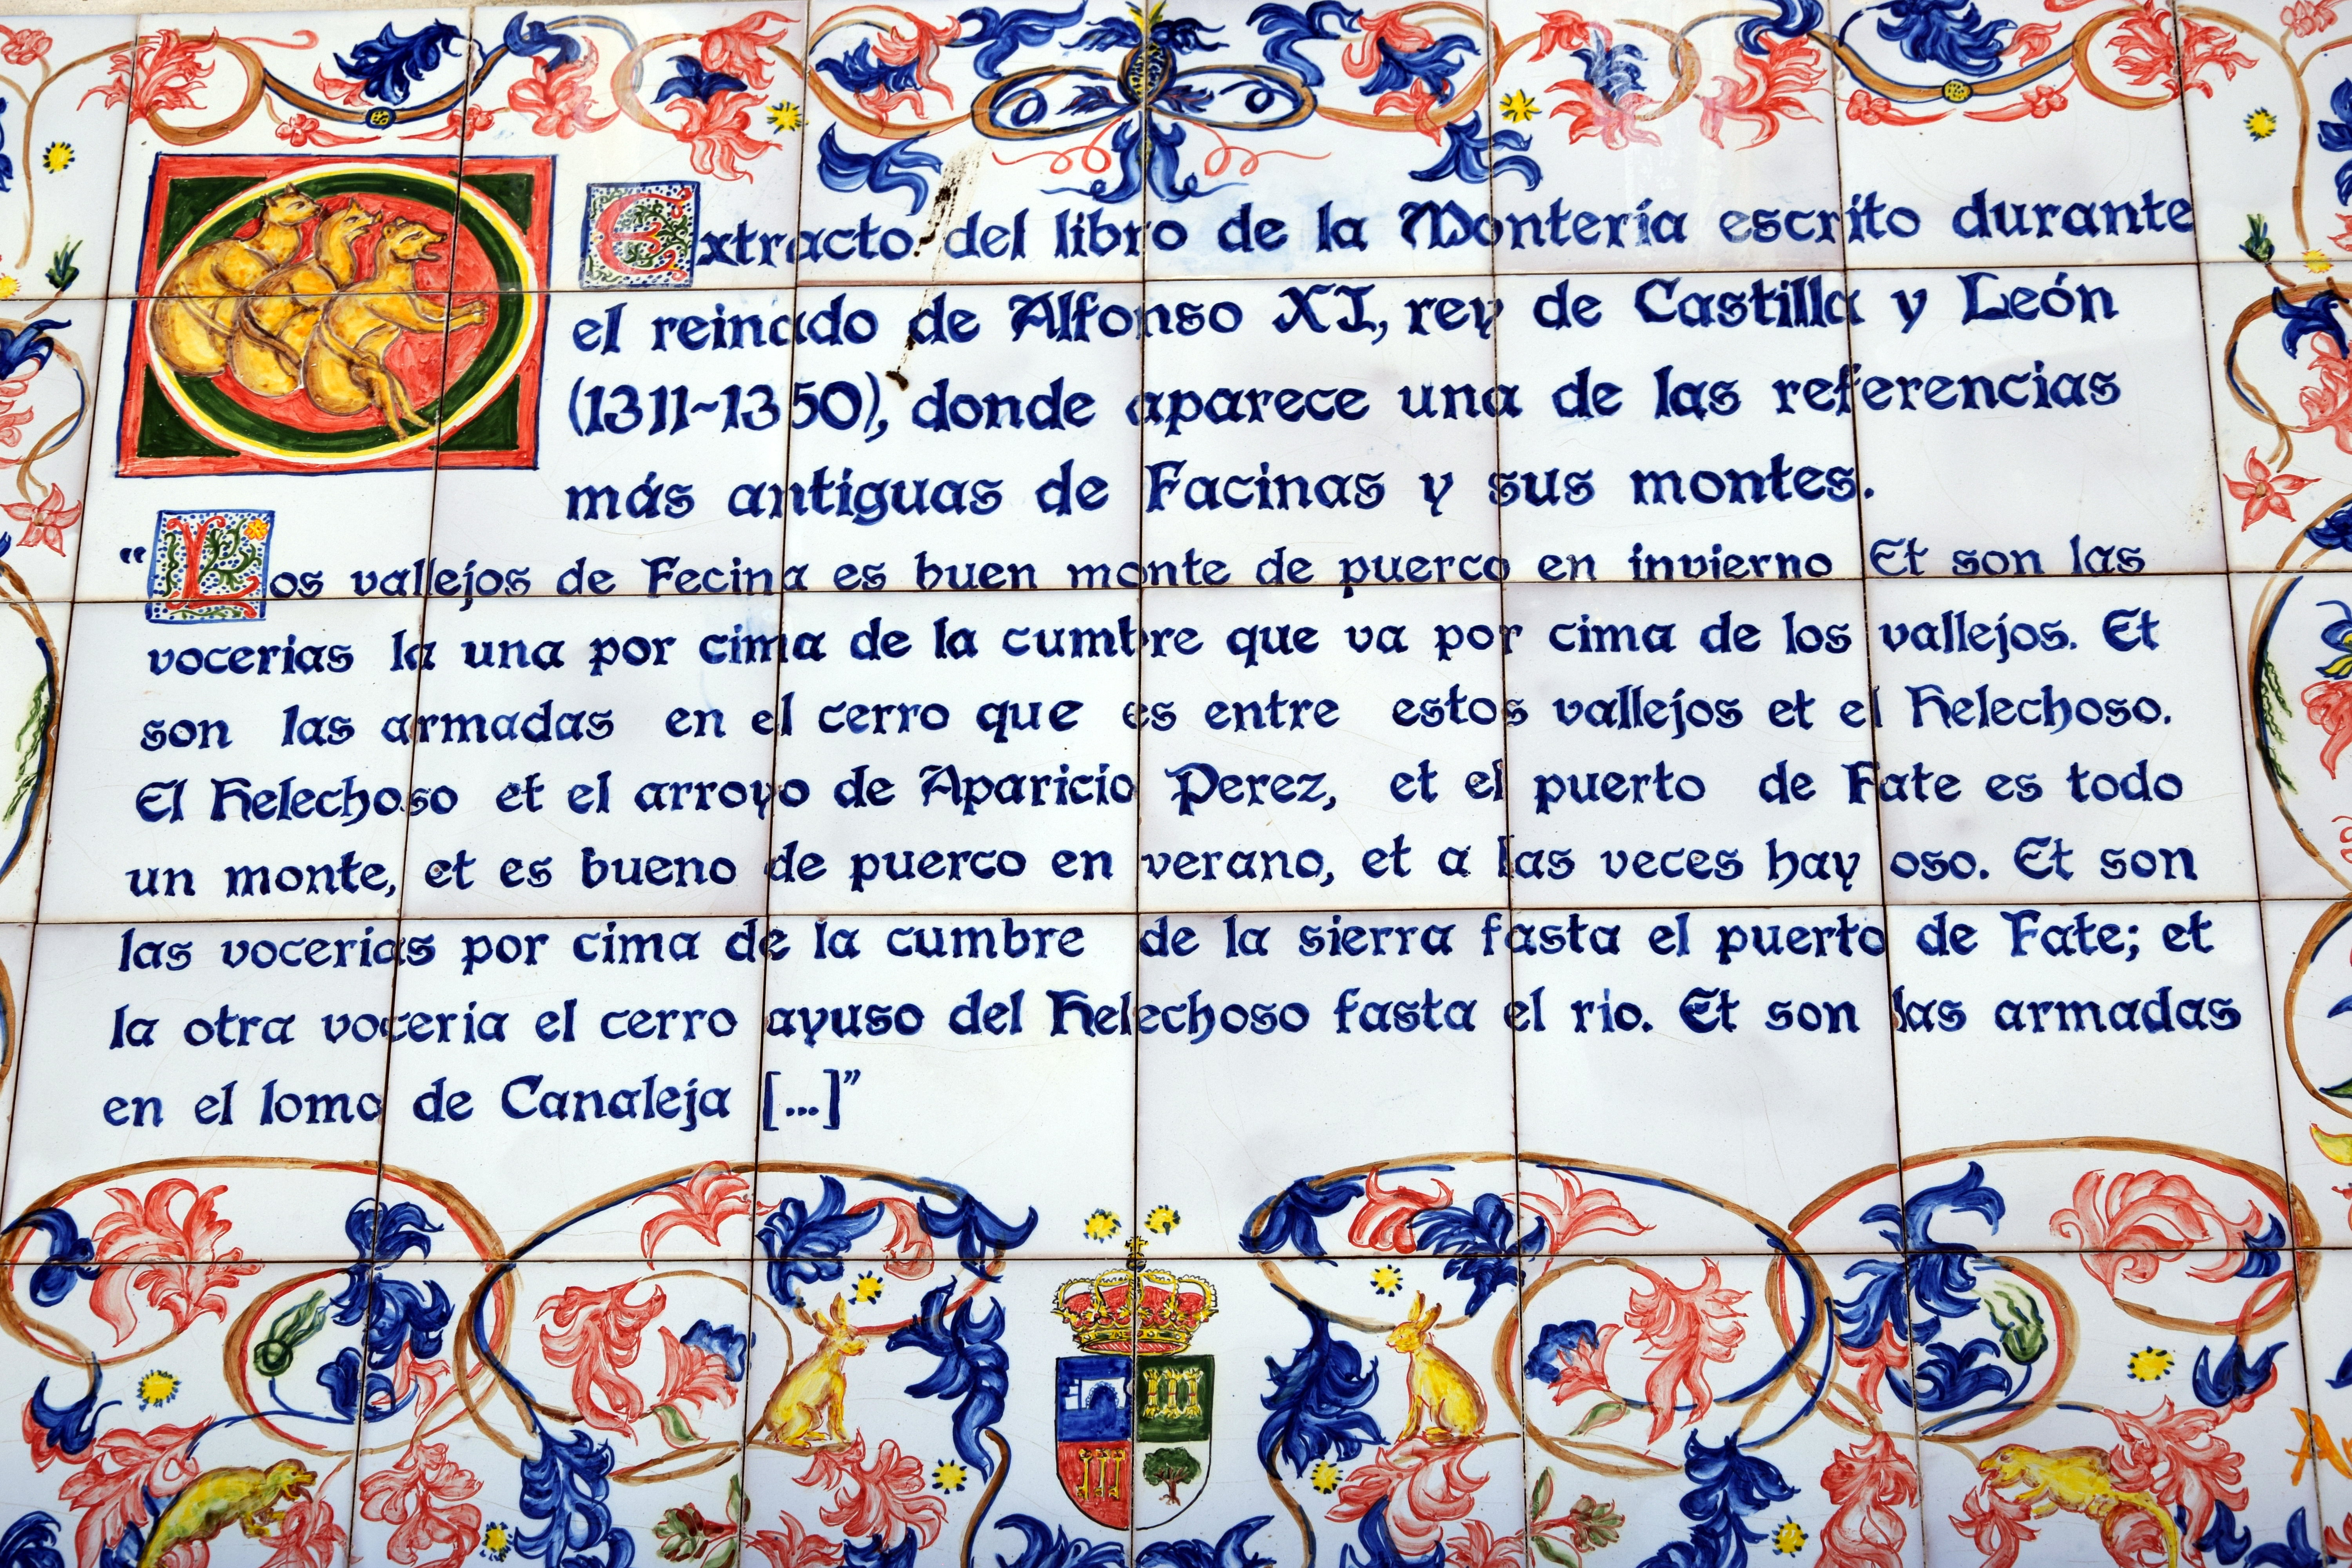 Extracto del libro de la Montería escrito durante
el reinado de Alfonso XI, rey de Castilla y León
(1311~1350), donde aparece una de las referencias
más antiguas de Facinas y sus montes.
“Los vallejos de Fecina es buen monte de puerco en invierno Et son las
vocerias la una por cima de la cumbre que va por cima de los vallejos. Et
son las armadas en el cerro que es entre estos vallejos et el Helechoso.
El Helechoso et el arroyo de Aparicio Perez, et el puerto de Fate es todo
un monte, et es bueno de puerco en verano, et a las veces hay oso. Et son
las vocerias por cima de la cumbre de la sierra fasta el puerto de Fate; et
la otra voceria el cerro ayuso del Helechoso fasta el rio. Et son las armadas
en el lomo de Canaleja [...]”